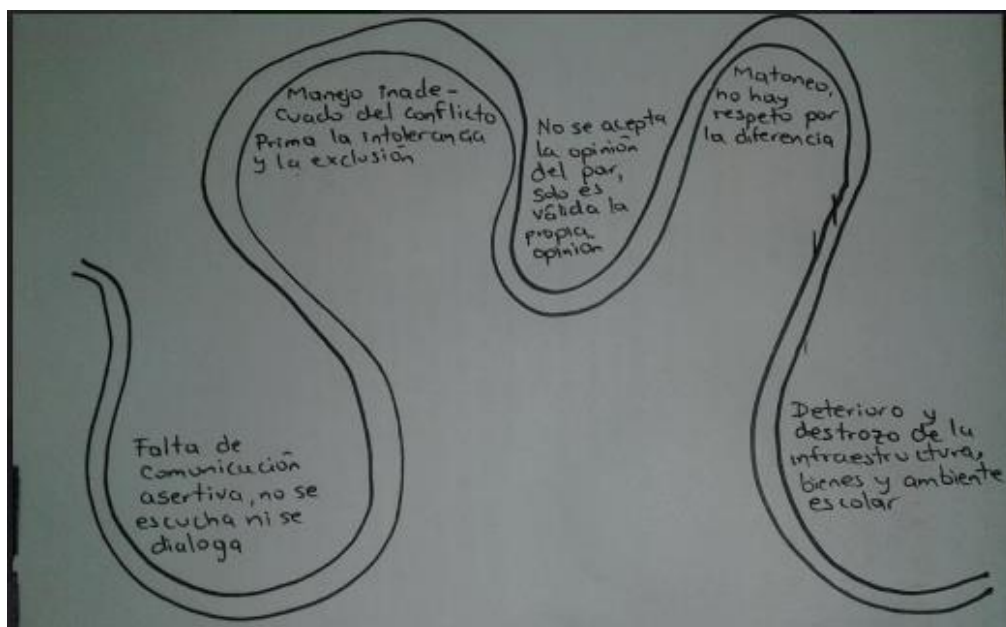 Falta de
comunicación
asertiva, no se
escucha ni se
dialoga
Manejo inade-
cuado del conflicto
Prima la intolerancia
y la exclusión
No se acepta
la opinión
del par,
solo es
válida la
propia
opinión
Matoneo,
no hay
respeto por
la diferencia
Deterioro y
destrozo de la
infraestructura,
bienes y ambiente
escolar